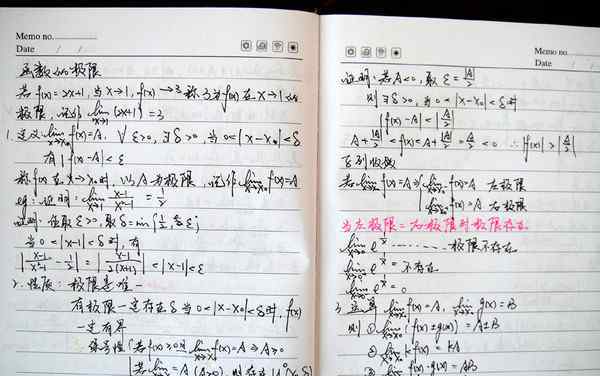 Memo no.
Date / /
函数的极限
若 f(x)=2x+1, 当 x→1, f(x)→3 称 3 为 f(x) 在 x→1 的
极限, 记作 lim x→1 (2x+1)=3
1. 定义: lim x→x₀ f(x)=A. ∀ ε>0, ∃ δ>0, 当 0<|x-x₀|<δ
有 |f(x)-A|<ε
称 f(x) 在 x→x₀ 时, 以 A 为极限, 记作 lim x→x₀ f(x)=A
eg: 证明: lim x→1 (x-1)/(x²-1) = 1/2
证明: 任取 ε>0, 取 δ=min{1/2, ε}
当 0<|x-1|<δ 时, 有
|(x-1)/(x²-1) - 1/2| = |(x-1)/(2(x+1))| < |x-1|<ε
2. 性质: 极限是唯一
有极限一定存在 δ 当 0<|x-x₀|<δ 时, f(x)
一定有界
保号性 { 若 f(x)≥0 且 lim x→x₀ f(x)=A ⇒ A≥0
若 lim x→x₀ =A (A>0), 则存在 U°(x₀ δ)
Memo no.
Date / /
证明: 若 A<0, 取 ε=|A|/2
则 ∃ δ>0, 当 0<|x-x₀|<δ 时
|f(x)-A|<|A/2|
A+|A|/2 < f(x) < A+|A|/2 = A/2 <0 ∴ |f(x)|>|A/2|
函数
若 lim x→x₀ f(x)=A ⇒ { lim f(x)=A 左极限
lim f(x)=A 右极限
当左极限=右极限时极限存在
lim e^(1/x) 极限不存在
lim e^(1/x) = 不存在
lim e^(1/x) = 0
3. 运算 lim x→x₀ f(x)=A, lim x→x₀ g(x)=B
则 ① lim x→x₀ (f(x)±g(x))=A±B
② lim x→x₀ k f(x)=kA
lim f(x)·g(x)=AB